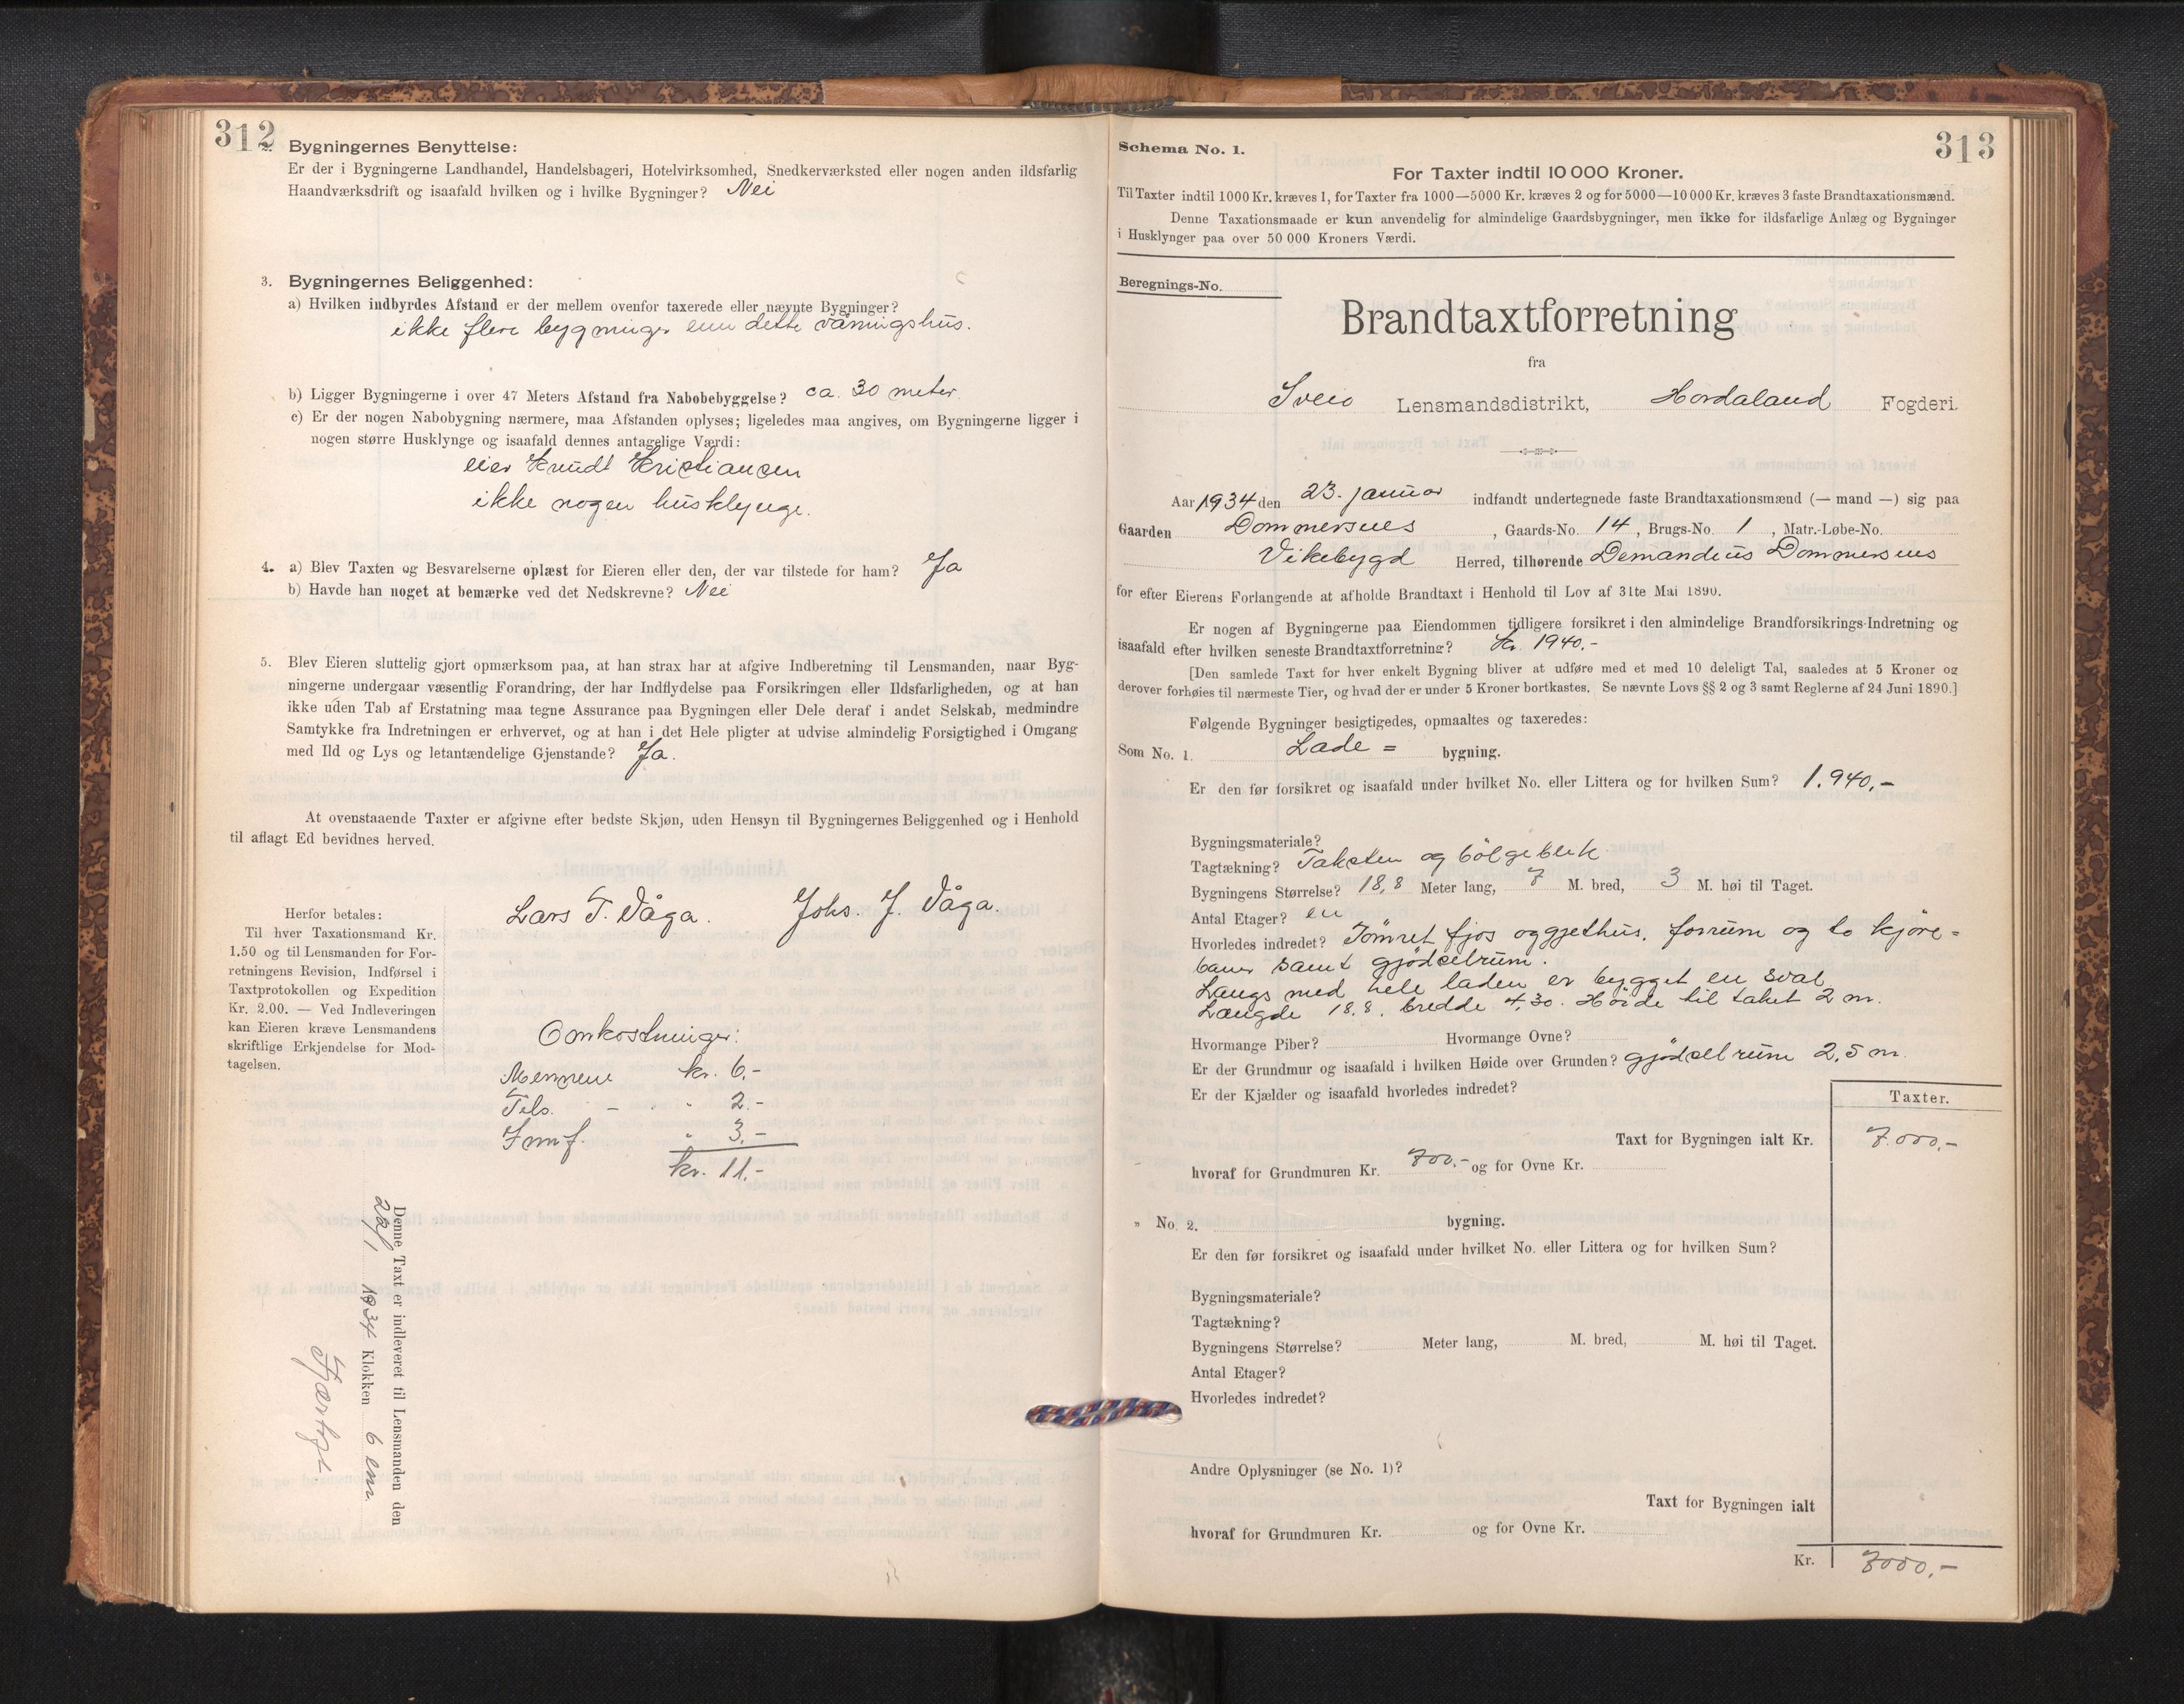 312
2. Bygningernes Benyttelse:
Er der i Bygningerne Landhandel, Handelsbageri, Hotelvirksomhed, Snedkerværksted eller nogen anden ildsfarlig
Haandværksdrift og isaafald hvilken og i hvilke Bygninger? Nei
3. Bygningernes Beliggenhed:
a) Hvilken indbyrdes Afstand er der mellem ovenfor taxerede eller nævnte Bygninger?
ikke flere bygninger enn dette våningshus.
b) Ligger Bygningerne i over 47 Meters Afstand fra Nabobebyggelse? ca. 30 meter.
c) Er der nogen Nabobygning nærmere, maa Afstanden oplyses; ligeledes maa angives, om Bygningerne ligger i
nogen større Husklynge og isaafald dennes antagelige Værdi:
eier Knudt Kristiansen
ikke nogen husklynge.
4. a) Blev Taxten og Besvarelserne oplæst for Eieren eller den, der var tilstede for ham? Ja
b) Havde han noget at bemærke ved det Nedskrevne? Nei
5. Blev Eieren sluttelig gjort opmærksom paa, at han strax har at afgive Indberetning til Lensmanden, naar Byg-
ningerne undergaar væsentlig Forandring, der har Indflydelse paa Forsikringen eller Ildsfarligheden, og at han
ikke uden Tab af Erstatning maa tegne Assurance paa Bygningen eller Dele deraf i andet Selskab, medmindre
Samtykke fra Indretningen er erhvervet, og at han i det Hele pligter at udvise almindelig Forsigtighed i Omgang
med Ild og Lys og letantændelige Gjenstande? Ja.
At ovenstaaende Taxter er afgivne efter bedste Skjøn, uden Hensyn til Bygningernes Beliggenhed og i Henhold
til aflagt Ed bevidnes herved.
Lars T. Våga. Johs. J. Våga.
Herfor betales:
Til hver Taxationsmand Kr.
1.50 og til Lensmanden for For-
retningens Revision, Indførsel i
Taxtprotokollen og Expedition
Kr. 2.00. — Ved Indleveringen
kan Eieren kræve Lensmandens
skriftlige Erkjendelse for Mod-
tagelsen.
Omkostninger:
Mennene kr. 6,-
Tils. - " 2.-
Innf. " 3.-
kr. 11.-
Denne Taxt er indleveret til Lensmanden den
22/1 1934 Klokken 6 em.
313
Schema No. 1.
For Taxter indtil 10 000 Kroner.
Til Taxter indtil 1000 Kr. kræves 1, for Taxter fra 1000—5000 Kr. kræves 2 og for 5000—10 000 Kr. kræves 3 faste Brandtaxationsmænd.
Denne Taxationsmaade er kun anvendelig for almindelige Gaardsbygninger, men ikke for ildsfarlige Anlæg og Bygninger
i Husklynger paa over 50 000 Kroners Værdi.
Beregnings-No.
Brandtaxtforretning
fra
Sveio Lensmandsdistrikt, Hordaland Fogderi.
Aar 1934 den 23. januar indfandt undertegnede faste Brandtaxationsmænd (— mand —) sig paa
Gaarden Dommersnes, Gaards-No. 14, Brugs-No. 1, Matr.-Løbe-No.
Vikebygd Herred, tilhørende Demandius Dommersnes
for efter Eierens Forlangende at afholde Brandtaxt i Henhold til Lov af 31te Mai 1890.
Er nogen af Bygningerne paa Eiendommen tidligere forsikret i den almindelige Brandforsikrings-Indretning og
isaafald efter hvilken seneste Brandtaxtforretning? kr. 1940.-
[Den samlede Taxt for hver enkelt Bygning bliver at udføre med et med 10 deleligt Tal, saaledes at 5 Kroner og
derover forhøies til nærmeste Tier, og hvad der er under 5 Kroner bortkastes. Se nævnte Lovs §§ 2 og 3 samt Reglerne af 24 Juni 1890.]
Følgende Bygninger besigtigedes, opmaaltes og taxeredes:
Som No. 1. Lade = bygning.
Er den før forsikret og isaafald under hvilket No. eller Littera og for hvilken Sum? 1.940,-
Bygningsmateriale?
Tagtækning? Taksten og bölgeblik
Bygningens Størrelse? 18,8 Meter lang, 7 M. bred, 3 M. høi til Taget.
Antal Etager? en
Hvorledes indredet? Tömret fjos og gjethus. forrum og to kjöre=
baner samt gjödselrum.
Langs med hele laden er bygget en sval
Længde 18.8. bredde 4,30. Höide til taket 2 m.
Hvormange Piber? Hvormange Ovne?
Er der Grundmur og isaafald i hvilken Høide over Grunden? gjödselrum 2,5 m.
Er der Kjælder og isaafald hvorledes indredet?
Taxter.
Taxt for Bygningen ialt Kr. 7.000,-
hvoraf for Grundmuren Kr. 700.- og for Ovne Kr.
" No. 2. bygning.
Er den før forsikret og isaafald under hvilket No. eller Littera og for hvilken Sum?
Bygningsmateriale?
Tagtækning?
Bygningens Størrelse? Meter lang, M. bred, M. høi til Taget.
Antal Etager?
Hvorledes indredet?
Andre Oplysninger (se No. 1)?
Taxt for Bygningen ialt
hvoraf for Grundmuren Kr. og for Ovne Kr.
Kr. 7000,-